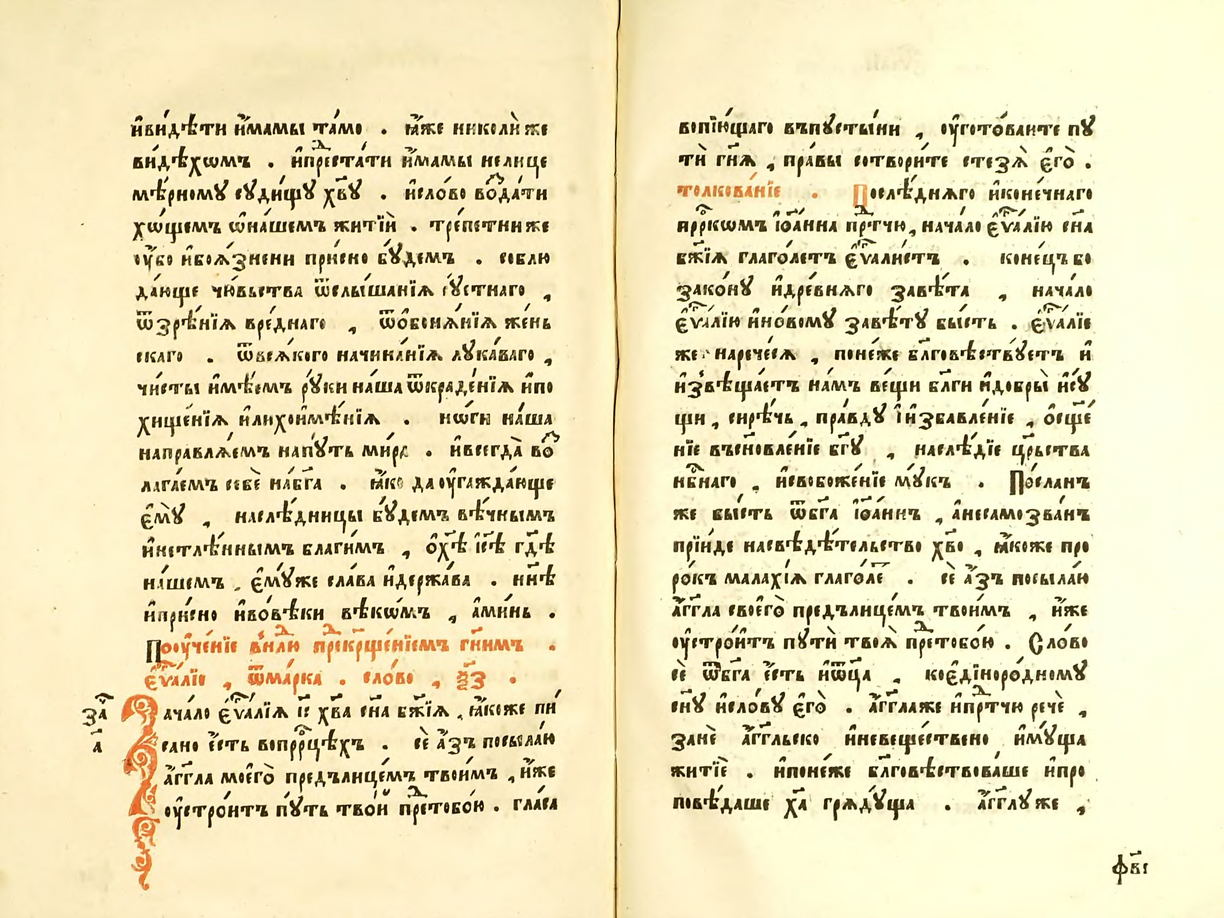 и҆ви́дѣти и҆́мамы та́мо . ꙗ҆́же николи́ же
ви́дѣхѡмъ . и҆преⷣста́ти и҆́мамы нелице
мѣ́рномꙋ сꙋди́щꙋ хв҃ꙋ . и҆сло́во воⷥда́ти
хѡ́щемъ ѡ҆на́шемъ житїѝ . тре́петни же
ᲂу҆́бо и҆боѧ́зненни при́сно бꙋ́демъ . соблю
да́юще чю́вьства ѿслы́шанїѧ гꙋ́стнаго ,
ѿзрѣ́нїѧ вре́днаго , ѿѡ҆бонѧ́нїѧ же́нь
скаго . ѿвсѧ́кого начина́нїѧ лꙋка́ваго ,
чи́сты и҆мѣ́емъ рꙋ́ки на́ша ѿкраде́нїѧ и҆по
хище́нїѧ и҆лихои҆мѣ́нїѧ . но́ги на́ша
направлѧ́емъ напꙋ́ть ми́ра . и҆всегда̀ воⷥ
лага́емъ себѐ на́бг҃а . ꙗ҆́ко да ᲂу҆гажда́юще
є҆мꙋ̀ , наслѣ́дницы бꙋ́демъ вѣ́чнымъ
и҆нетлѣ́ннымъ благи́мъ , ѡ҆ хⷭ҇ѣ і҆с҃ѣ гдⷭ҇ѣ
на́шемъ , є҆мꙋ́же сла́ва и҆держа́ва . нн҃ѣ
и҆при́сно и҆во́вѣки вѣкѡ́мъ , а҆ми́нь .
Поᲂуче́нїе внⷣлю преⷣкрⷳ҇ще́нїемъ гн҃имъ .
є҆ѵⷢ҇а́лїе , ѿма́рка . сло́во , ѯ҃з .
зⷱ҇а Зача́ло є҆ѵⷢ҇а́лїѧ і҆с҃ хв҃а сн҃а бж҃їѧ , ꙗ҆́коже пи́
а҃ сано є҆́сть вопрⷪ҇рцѣхъ . сѐ а҆́зъ посыла́ю
а҆́гг҃ла моего̀ предълице́мъ твои́мъ , и҆́же
ᲂу҆стро́итъ пꙋ́ть тво́й преⷣтобо́ю . гла́са
вопїю́щаго въпꙋсты́ни , ᲂу҆гото́вайте пꙋ
тѝ гн҃ѧ , пра́вы сотвори́те стезѧ̀ є҆го̀ .
толкова́нїе . Послѣ́днѧго и҆коне́чнаго
прⷪ҇ркѡмъ і҆ѡа́нна прⷣтчю , нача́ло є҆ѵⷢ҇а́лїю сн҃а
бж҃їѧ глаго́летъ є҆ѵⷢ҇али́стъ . коне́цъ бо
зако́нꙋ и҆дре́внѧго заве́та , нача́ло
є҆ѵⷢ҇а́лїю и҆но́вомꙋ завѣ́тꙋ бы́сть . є҆ѵⷢ҇а́лїе
же нарече́сѧ , поне́же бл҃говѣствꙋ́етъ и҆
и҆звѣща́етъ на́мъ ве́щи бл҃ги и҆до́бры̀ и҆сꙋ
щи , сирѣ́чь , пра́вдꙋ і҆и҆збавле́нїе , ѡ҆сщ҃е́
нїе въсн҃овле́нїе бг҃ꙋ , наслѣ́дїе црⷭ҇ьства
нбⷭ҇наго , и҆свобоже́нїе мꙋ́къ . По́сланъ
же бы́сть ѿбг҃а і҆ѡа́ннъ , а҆несамозва́нъ
прїи́де насвѣдѣ́тельство хв҃о , ꙗ҆́коже про
ро́къ мала́хїѧ глаго́ле . сѐ а҆́зъ посыла́ю
а҆́гг҃ла своего̀ предълице́мъ твои́мъ , и҆́же
ᲂу҆стро́итъ пꙋтѝ твоѧ̀ преⷣтобо́ю . Сло́во
сѐ ѿбг҃а є҆́сть и҆ѿц҃а , коє҆диноро́дномꙋ
сн҃ꙋ и҆сло́вꙋ є҆го̀ . а҆́гг҃лаже и҆прⷣтчю речѐ ,
занѐ а҆́гг҃льско и҆невеще́ствено и҆мꙋ́ща
житїѐ . и҆поне́же бл҃говѣ́ствова́ше и҆про
повѣ́даше хⷭ҇а грѧдꙋ́ща . а҆́гг҃лꙋ же ,